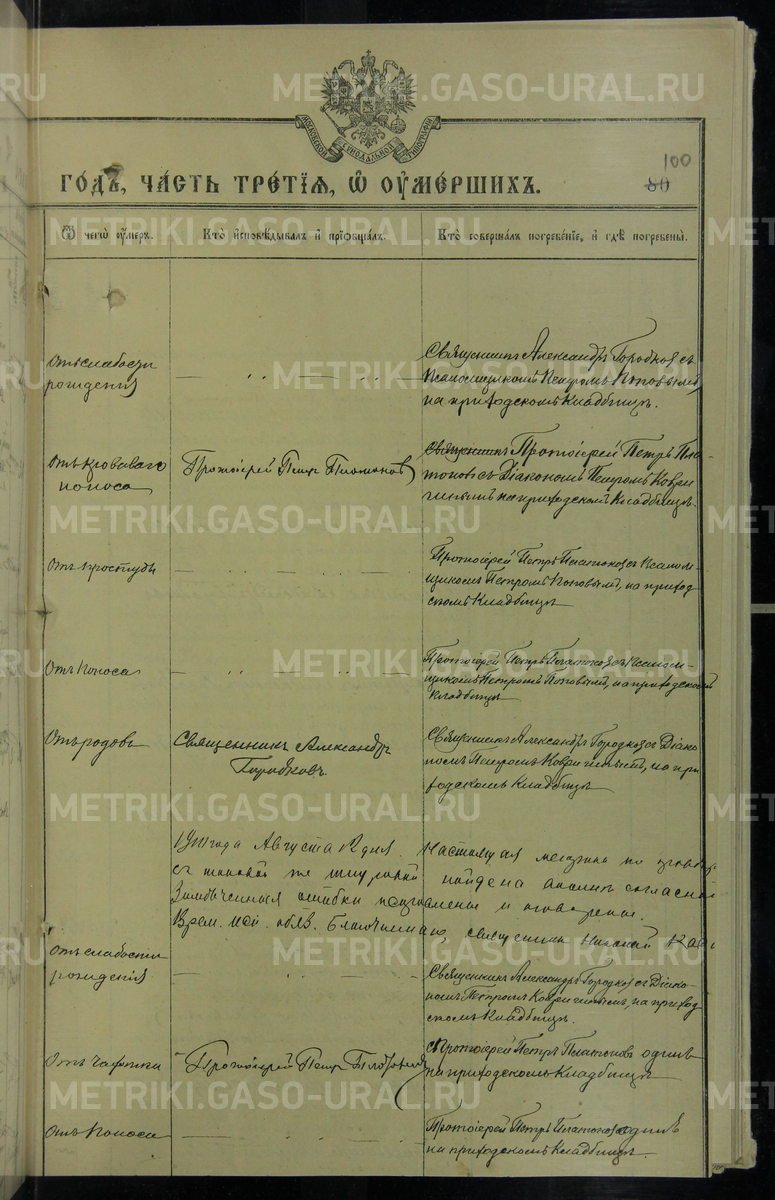 METRIKI.GASO-URAL.RU
МОСКОВСКОЙ СѴНОДАЛЬНОЙ ТИПОГРАФІИ
100
80
ГОДЪ, ЧАСТЬ ТРЕТІЯ, Ѿ ОУМЕРШИХЪ.
Ѿ чегѡ оумеръ.
Кто исповѣдывалъ и пріобщалъ.
Кто совершалъ погребеніе, и гдѣ погребены.
Отъ слабости
рожденія
Священникъ Александръ Городковъ съ
Псаломщикомъ Петромъ Поповымъ,
на приходскомъ кладбищѣ.
Отъ кроваваго
поноса
Протоіерей Петръ Платоновъ
Священникъ Протоіерей Петръ Пла-
тоновъ съ Діакономъ Петромъ Коври
гинымъ на приходскомъ кладбищѣ.
Отъ простуды
Протоіерей Петръ Платоновъ съ Псалом-
щикомъ Петромъ Поповымъ, на приход
скомъ кладбищѣ
Отъ поноса
Протоіерей Петръ Платоновъ съ Псалом-
щикомъ Петромъ Поповымъ, на приходскомъ
кладбищѣ
Отъ родовъ
Священникъ Александръ
Городковъ.
Священникъ Александръ Городковъ съ Діако
номъ Петромъ Ковригинымъ, на при
ходскомъ кладбищѣ
года Августа 12 дня. Настоящая метрика по
съ таковой же найдена вполнѣ согласно
Замѣченныя ошибки и оговорены.
Врем. исп. обяз. Благочиннаго, священникъ Николай
Отъ слабости
рожденія
Священникъ Александръ Городковъ съ Діако-
номъ Петромъ Ковригинымъ, на приход
скомъ кладбищѣ.
Отъ чахотки
Протоіерей Петръ Платоновъ
Протоіерей Петръ Платоновъ одинъ
на приходскомъ кладбищѣ
Отъ поноса
Протоіерей Петръ Платоновъ одинъ
на приходскомъ кладбищѣ.